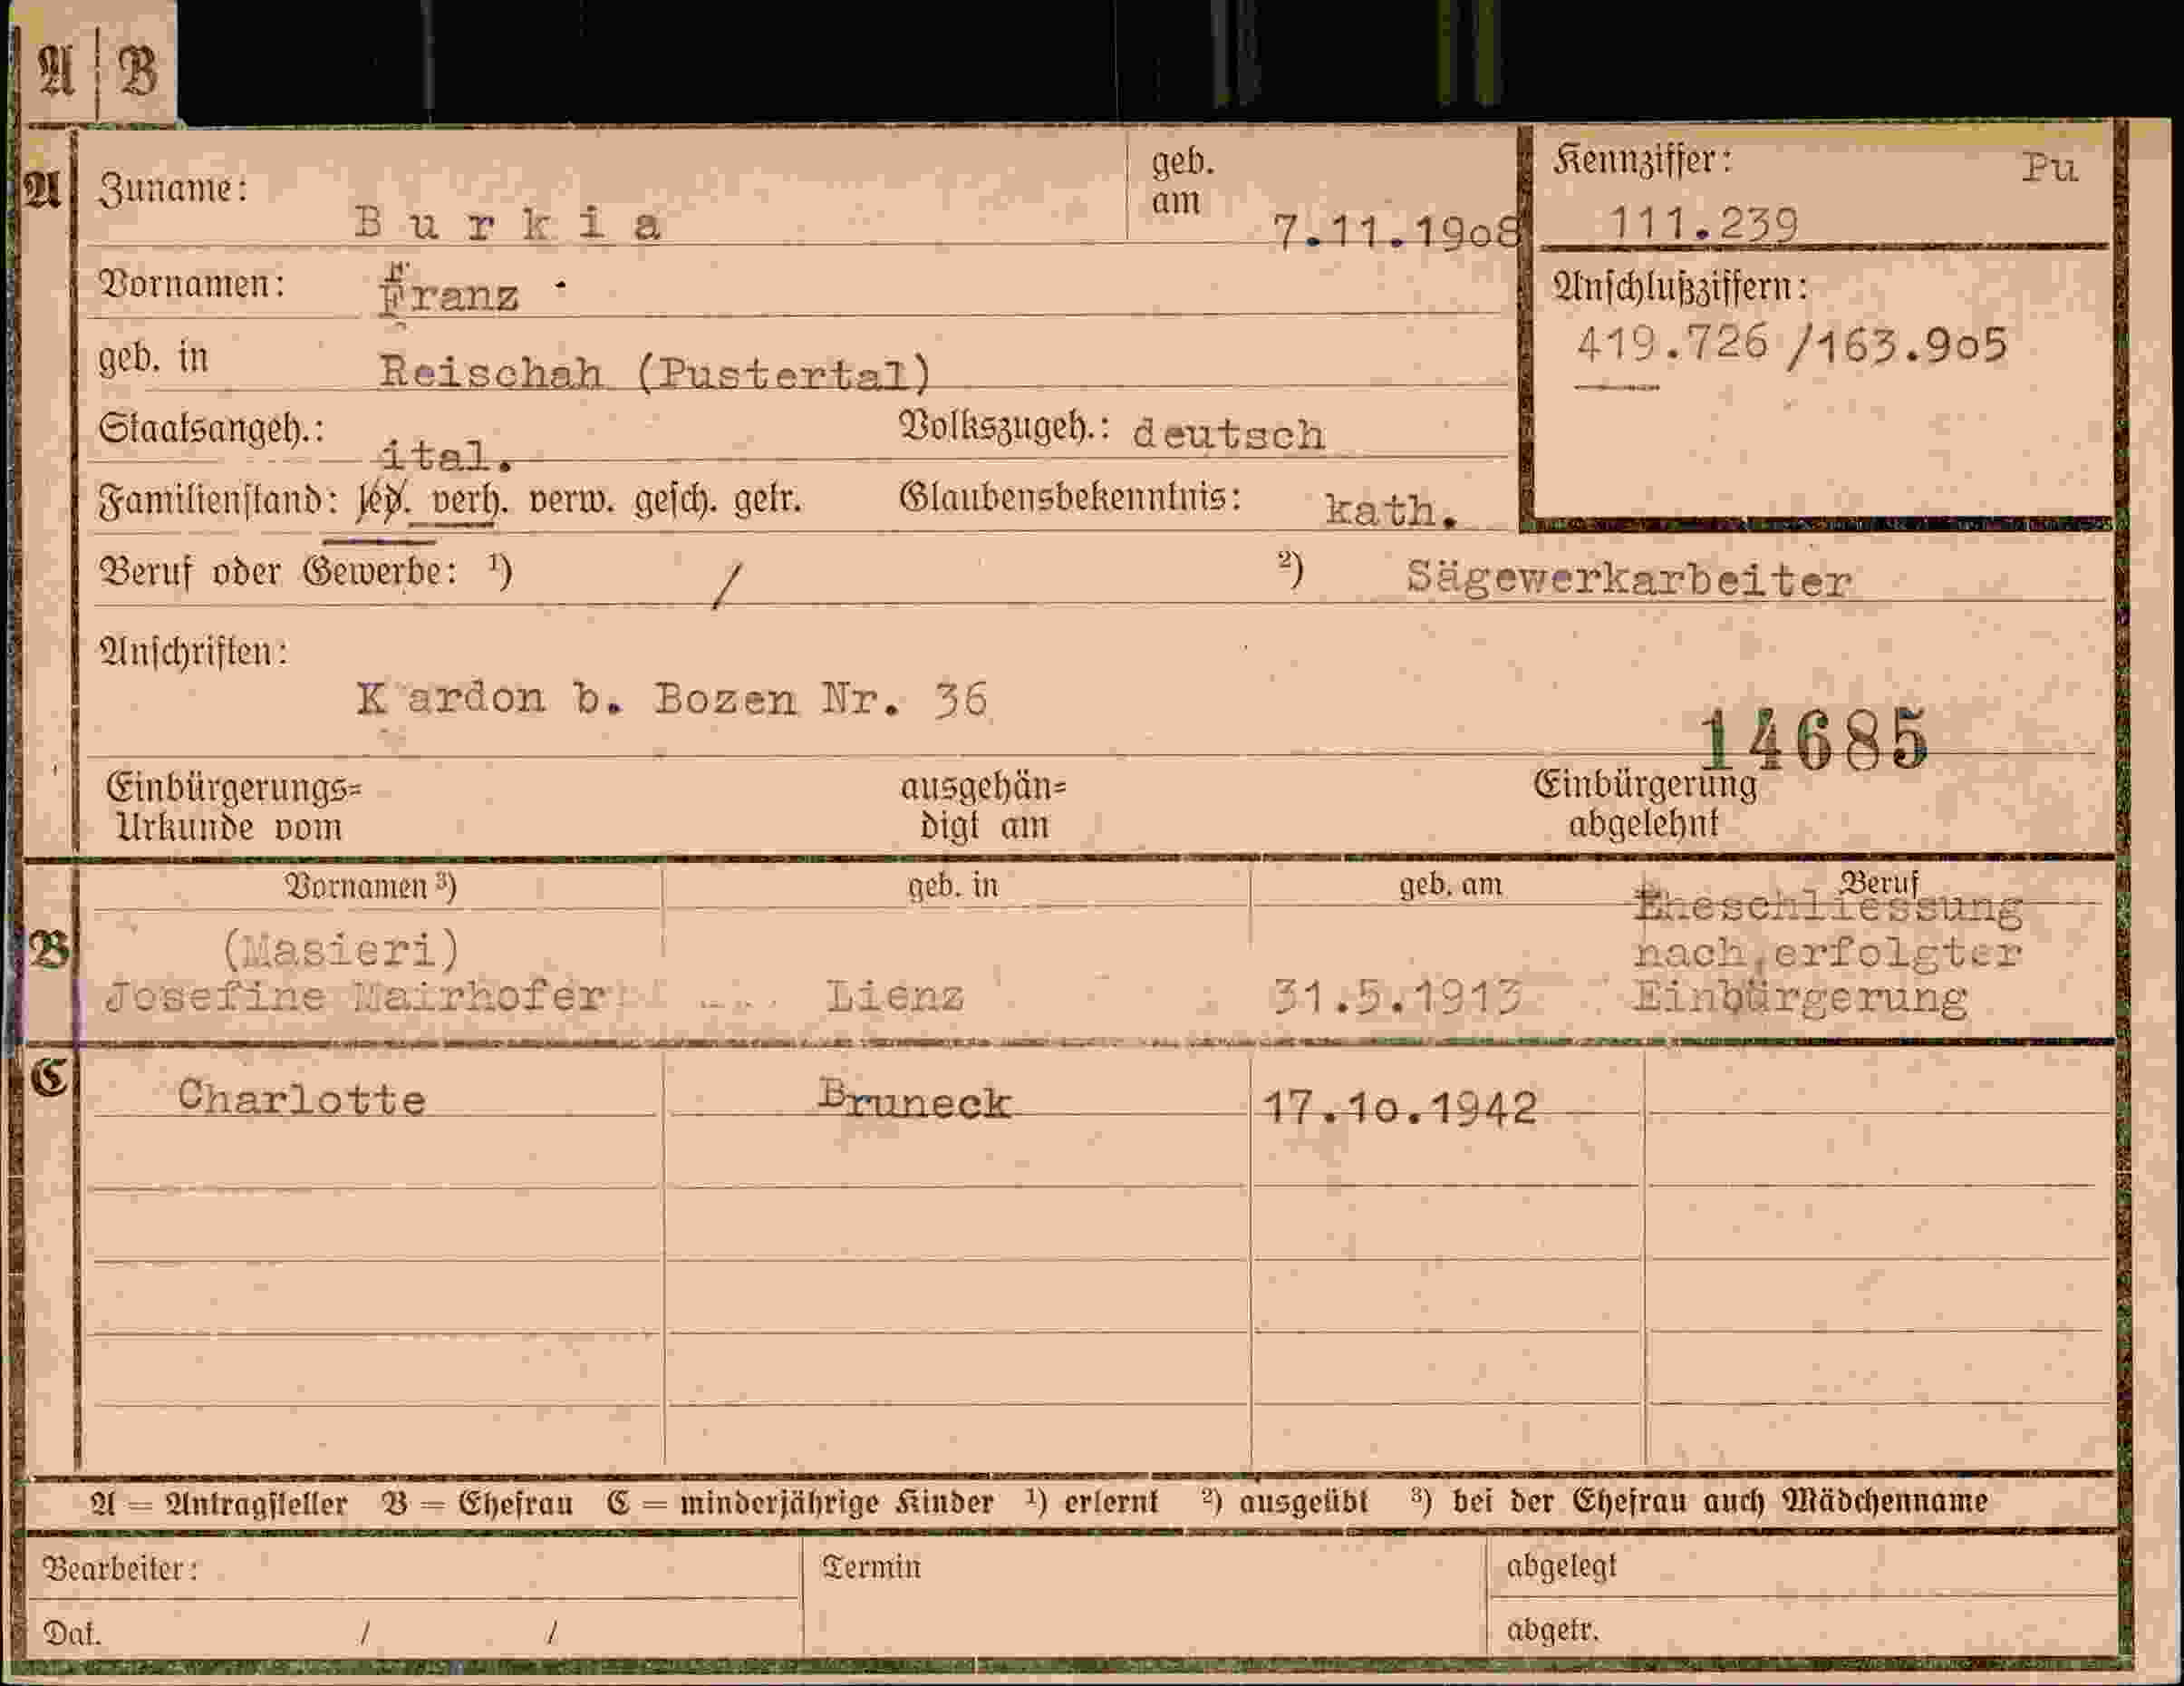 A | B
A Zuname: Burkia geb. am 7.11.1908 Kennziffer: Pu
111.239
Vornamen: Franz Anschlußziffern:
419.726 /163.905
geb. in Reischah (Pustertal)
Staatsangeh.: ital. Volkszugeh.: deutsch
Familienstand: led. verh. verw. gesch. getr. Glaubensbekenntnis: kath.
Beruf oder Gewerbe: ¹) / ²) Sägewerkarbeiter
Anschriften:
K ardon b. Bozen Nr. 36
14685
Einbürgerungs= ausgehän= Einbürgerung
Urkunde vom digt am abgelehnt
Vornamen ³) geb. in geb. am Beruf
B (Masieri) Eheschliessung
nach erfolgter
Josefine Mairhofer Lienz 31.5.1913 Einbürgerung
C Charlotte Bruneck 17.10.1942
A = Antragsteller B = Ehefrau C = minderjährige Kinder ¹) erlernt ²) ausgeübt ³) bei der Ehefrau auch Mädchenname
Bearbeiter: Termin abgelegt
Dat. / / abgetr.